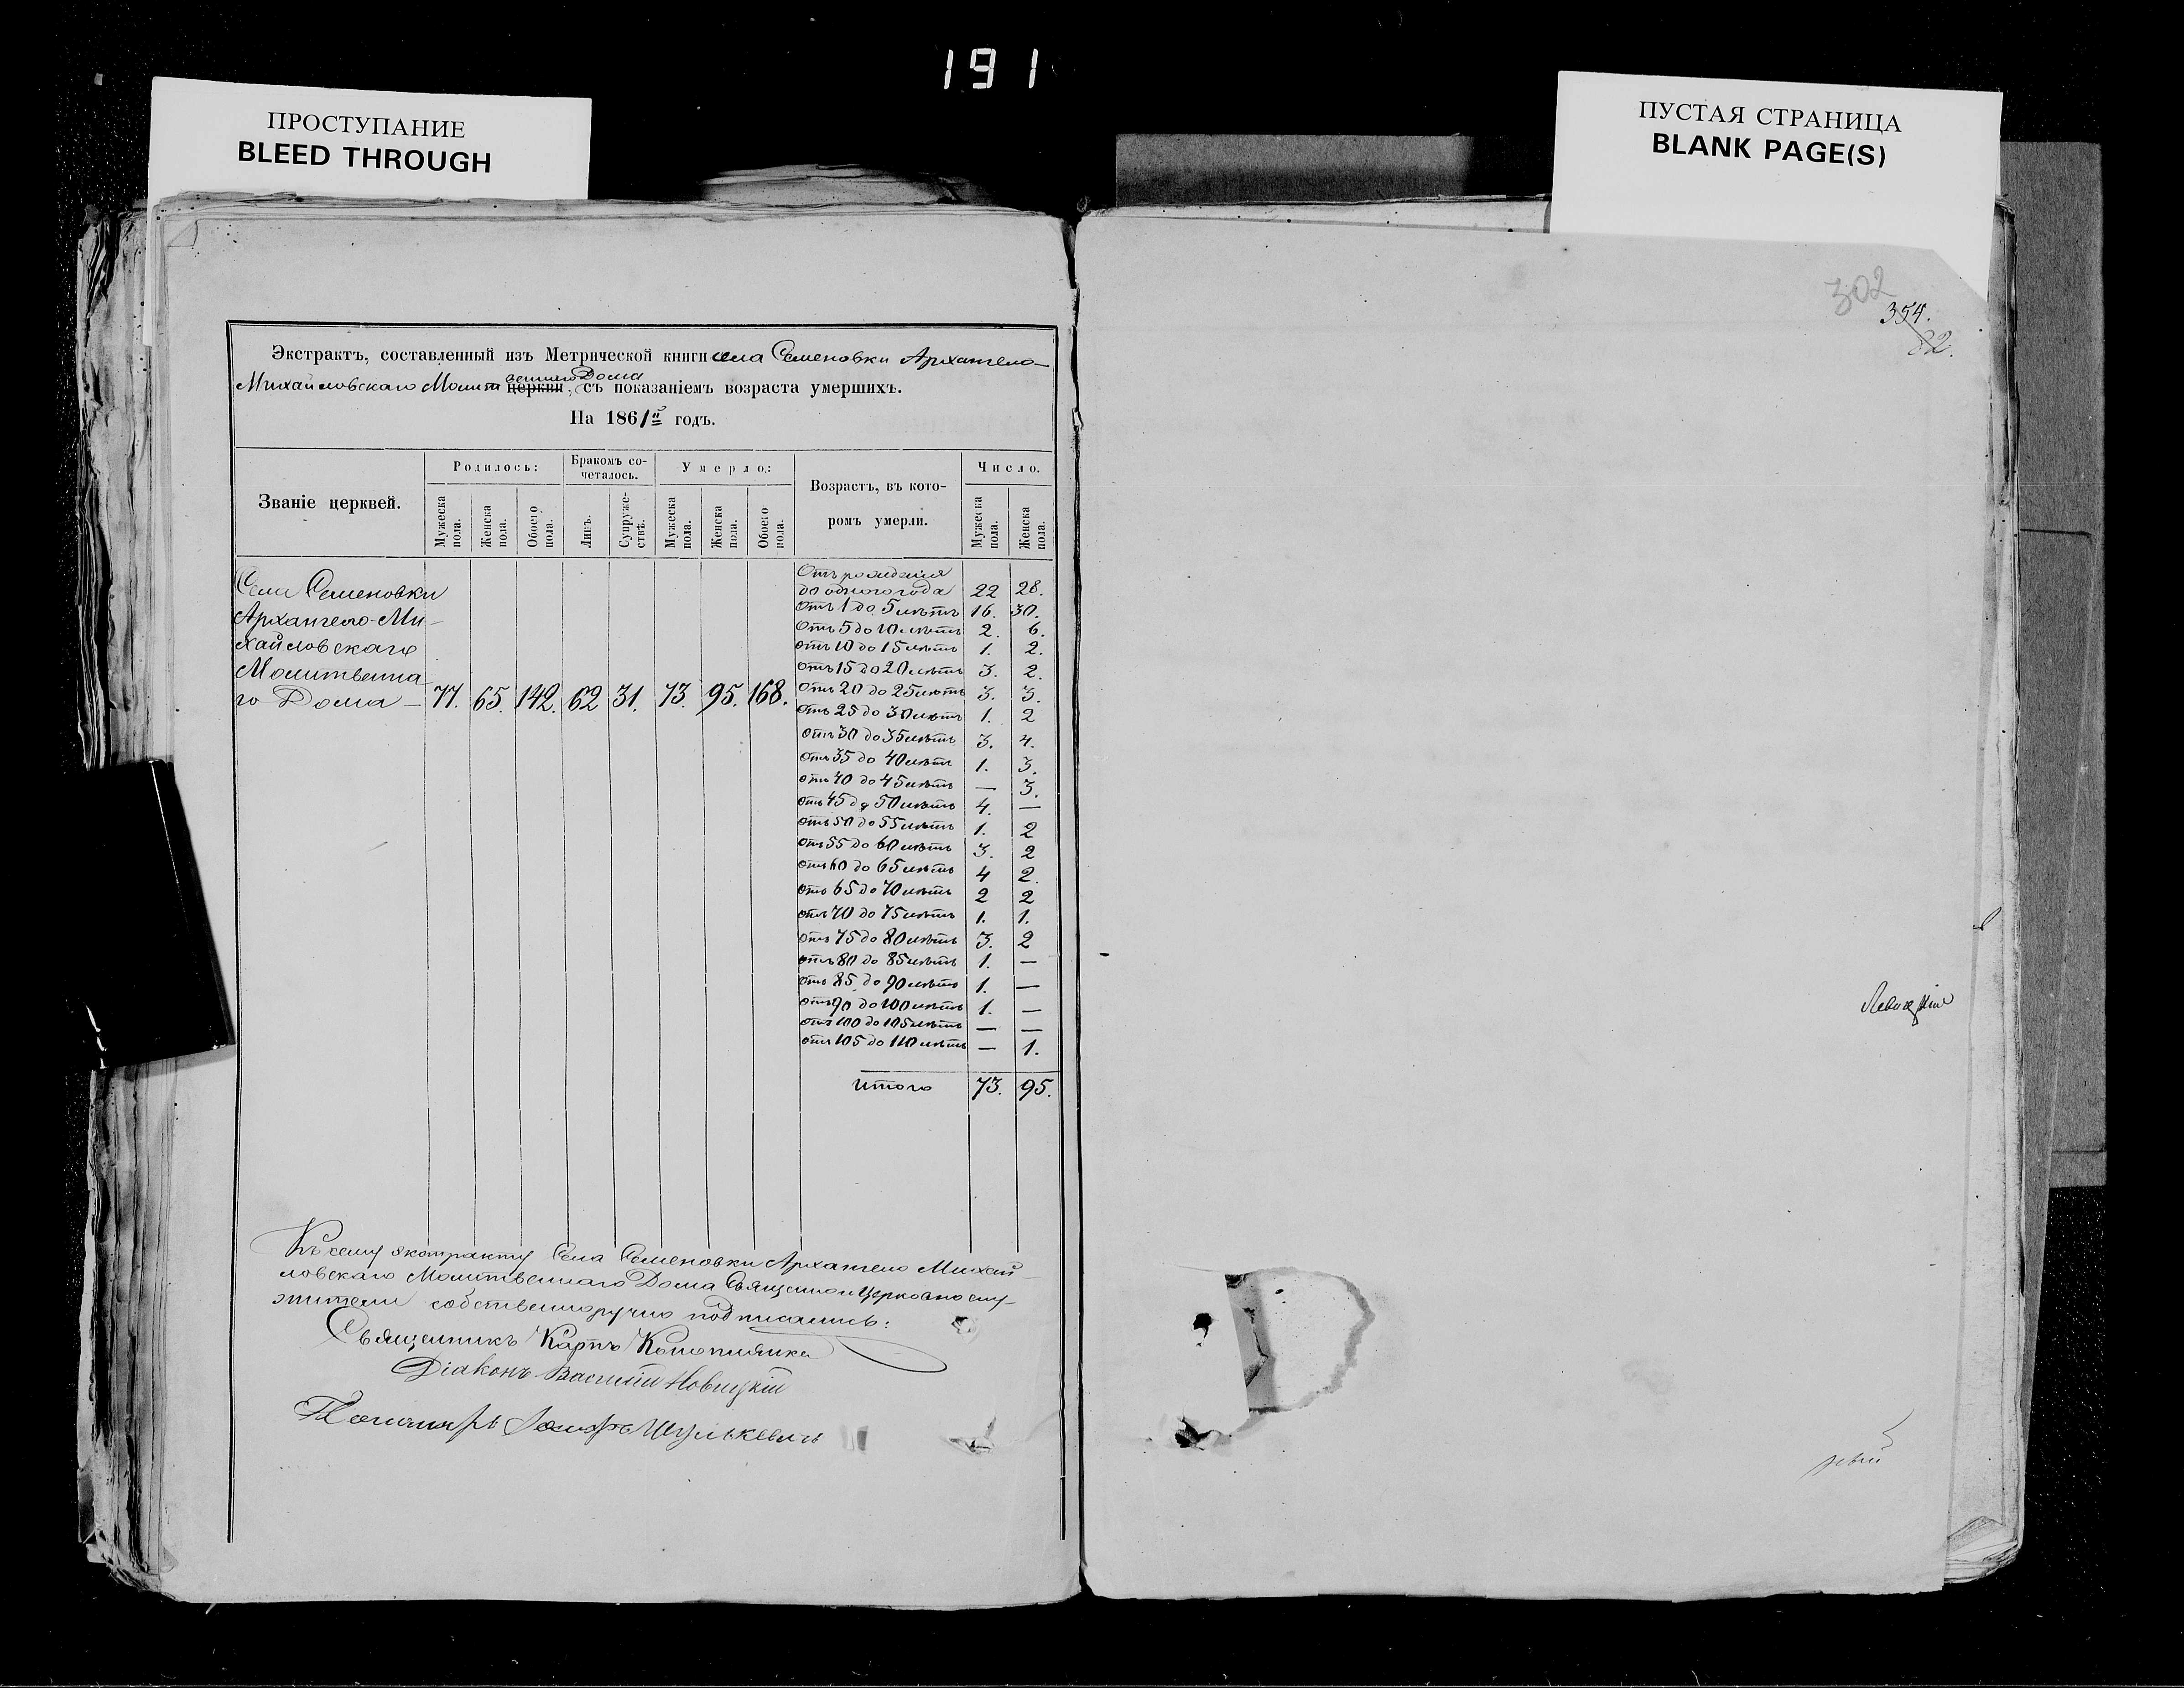 191
ПРОСТУПАНИЕ
BLEED THROUGH
ПУСТАЯ СТРАНИЦА
BLANK PAGE(S)
302
354.
22.
Экстрактъ, составленный изъ Метрической книги села Семеновки Архангело-
Михайловскаго Молитвеннаго Дома церкви, съ показаніемъ возраста умершихъ.
На 1861й годъ.
Званіе церквей.
Родилось:
Бракомъ со-
четалось.
Умерло:
Возрастъ, въ кото-
ромъ умерли.
Число.
Мужеска пола.
Женска пола.
Обоего пола.
Лицъ.
Супруже-
ствъ.
Мужеска пола.
Женска пола.
Обоего пола.
Мужеска пола.
Женска пола.
Села Семеновки
Архангело-Ми-
хайловскаго
Молитвенна
го Дома — 77. 65. 142. 62 31. 73. 95. 168.
Отъ рожденія
до одного года 22 28.
отъ 1 до 5 лѣтъ 16. 30.
Отъ 5 до 10 лѣтъ 2. 6.
отъ 10 до 15 лѣтъ 1. 2.
отъ 15 до 20 лѣтъ 3. 2.
отъ 20 до 25 лѣтъ 3. 3.
отъ 25 до 30 лѣтъ 1. 2
отъ 30 до 35 лѣтъ 3. 4.
отъ 35 до 40 лѣтъ 1. 3.
отъ 40 до 45 лѣтъ — 3.
отъ 45 до 50 лѣтъ 4. —
отъ 50 до 55 лѣтъ 1. 2
отъ 55 до 60 лѣтъ 3. 2
отъ 60 до 65 лѣтъ 4 2.
отъ 65 до 70 лѣтъ 2 2
отъ 70 до 75 лѣтъ 1. 1.
отъ 75 до 80 лѣтъ 3. 2
отъ 80 до 85 лѣтъ 1. —
отъ 85 до 90 лѣтъ 1. —
отъ 90 до 100 лѣтъ 1. —
отъ 100 до 105 лѣтъ — —
отъ 105 до 110 лѣтъ — 1.
Итого 73. 95.
Къ сему экстракту Села Семеновки Архангело Михай-
ловскаго Молитвеннаго Дома Священно и Церковно слу-
жители собственноручно подписались:
Священникъ Карпъ Коноплянка
Діаконъ Василий Новицкій
Пономарь Іосифъ